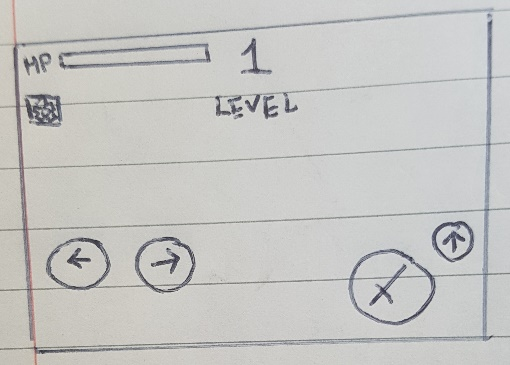 HP 1
LEVEL